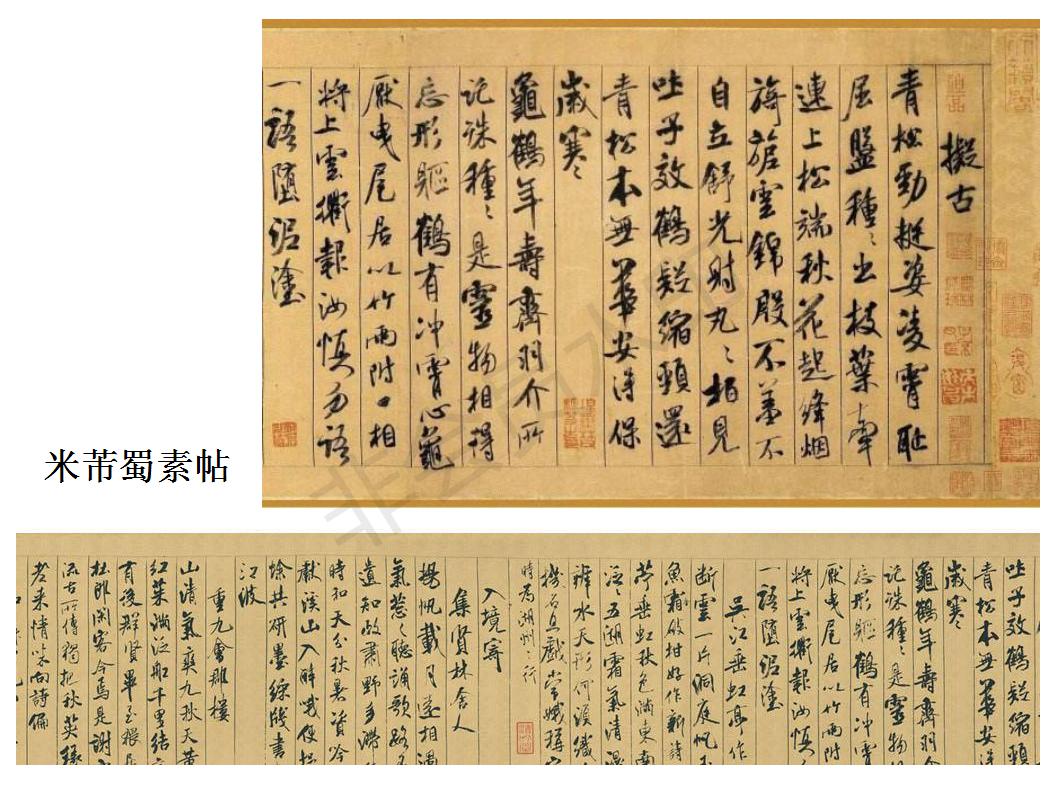 米芾蜀素帖
擬古
青松勁挺姿凌霄恥
屈盤種〻出枝葉牽
連上松端秋花起絳烟
旖旎雲錦殷不羞不
自立舒光射丸〻柏見
吐子效鶴疑縮頸還
青松本無華安得保
歲寒〻
龜鶴年壽齊羽介所
託殊種〻是靈物相得
忘形軀鶴有冲霄心龜
厭曳尾居以竹兩附口相
將上雲衢報汝慎勿語
一語墮泥塗
吐子效鶴疑縮頸
青松本無華安
歲寒〻
龜鶴年壽齊羽
託殊種〻是靈物
忘形軀鶴有冲
厭曳尾居以竹兩
將上雲衢報汝慎
一語墮泥塗
吳江垂虹亭作
断雲一片洞庭帆
破柑好作新詩
垂虹秋色満東南
泛〻五湖霜氣清漫
辨水天形何須織
機石且戲常娥稱
時為湖州之行
入境寄
集賢林舍人
揚帆載月遠相過
氣葱〻聽誦歌路
遺知政肅野多滯
時和天分秋暑資吟
獻溪山入醉哦便捉
蜍共研墨綵牋書
江波
重九會郡樓
山清氣爽九秋天黃
紅茱滿泛船千里結
有後群賢畢至猥居
杜郎閑客今焉是謝
流古所傳獨把秋英緣
老來情味向詩偏